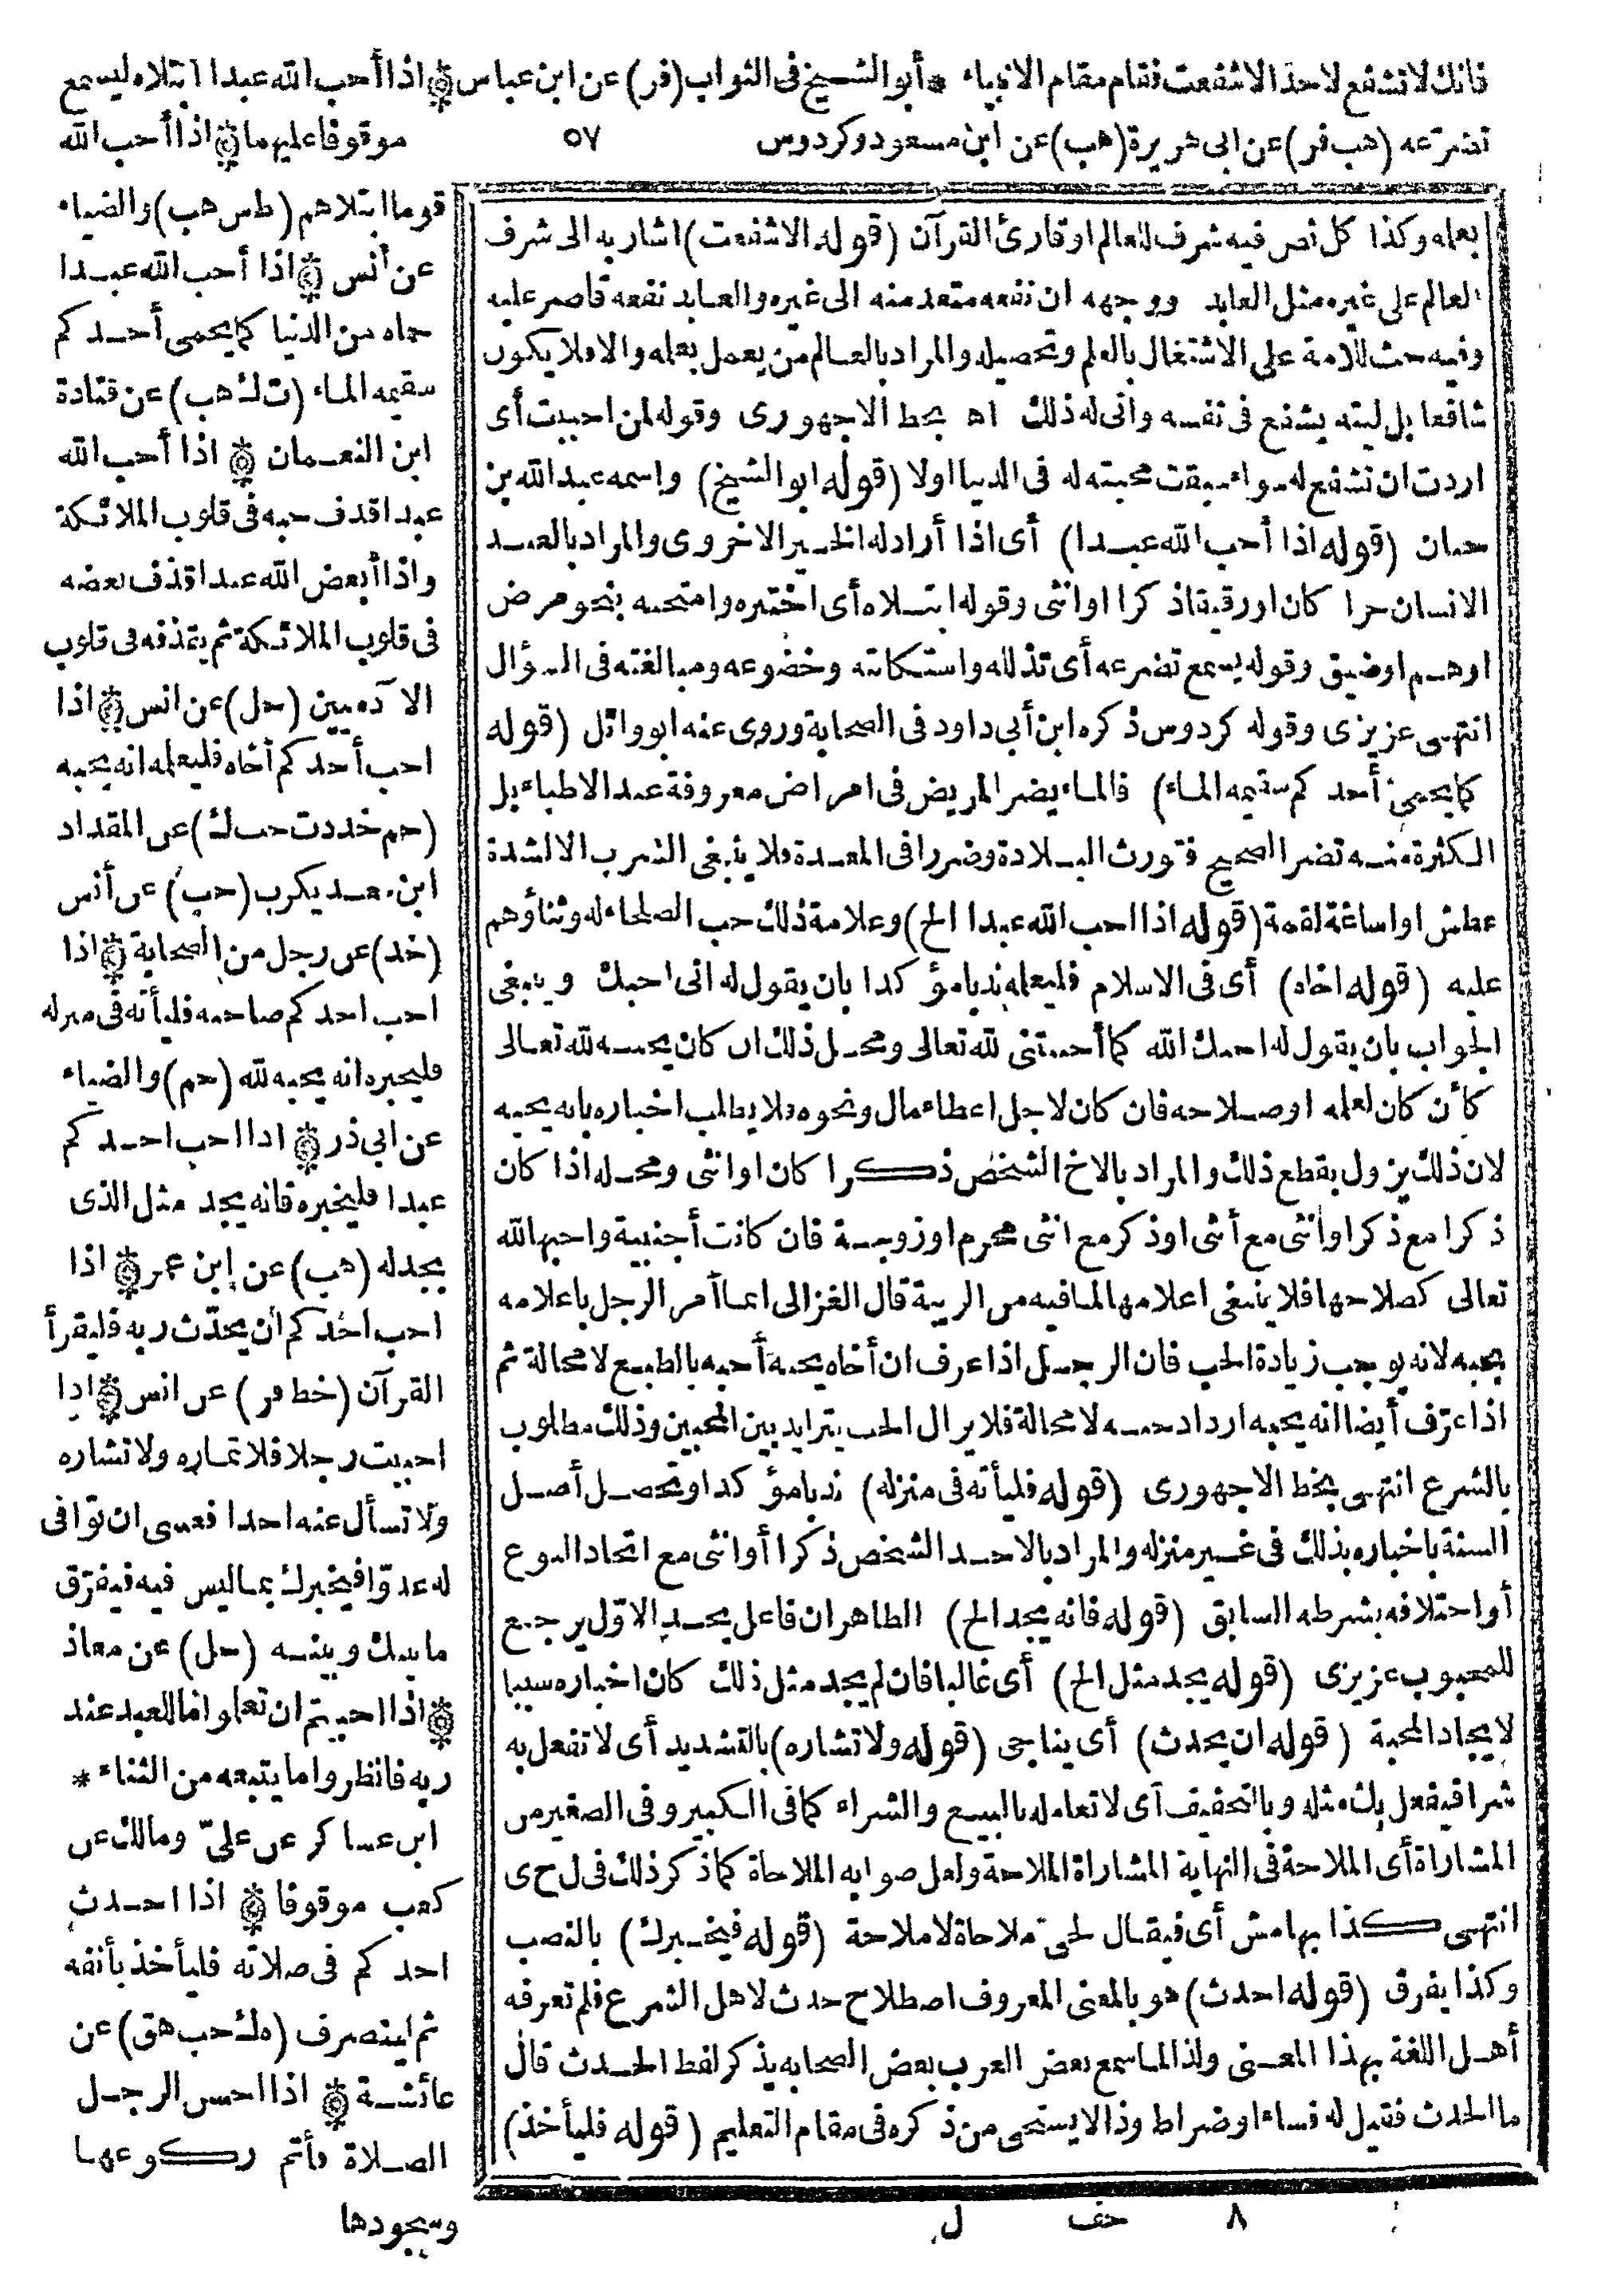 فانك لا تشفع لاحد الا شفعت فقام مقام الانبياء * أبو الشيخ فى الثواب (فر) عن ابن عباس ۞ اذا أحب الله عبدا ابتلاه ليسمع
تضرعه (هب فر) عن ابى هريرة (هب) عن ابن مسعود وكردوس ٥٧ موقوفا عليهما ۞ اذا أحب الله
قوما ابتلاهم (طس هب) والضياء
عن أنس ۞ اذا أحب الله عبدا
حماه من الدنيا كما يحمى أحدكم
سقيمه الماء (ت ك هب) عن قتادة
ابن النعمان ۞ اذا أحب الله
عبدا قذف حبه فى قلوب الملائكة
واذا أبغض الله عبدا قذف بغضه
فى قلوب الملائكة ثم يقذفه فى قلوب
الآدميين (حل) عن انس ۞ اذا
احب أحدكم أخاه فليعلمه انه يحبه
(حم خد د ت حب ك) عن المقداد
ابن معد يكرب (حب) عن أنس
(خد) عن رجل من الصحابة ۞ اذا
احب احدكم صاحبه فليأته فى منزله
فليخبره انه يحبه لله (حم) والضياء
عن ابى ذر ۞ اذا احب احدكم
عبدا فليخبره فانه يجد مثل الذى
يجد له (هب) عن ابن عمر ۞ اذا
احب احدكم أن يحدّث ربه فليقرأ
القرآن (خط فر) عن انس ۞ اذا
احببت رجلا فلا تماره ولا تشاره
ولا تسأل عنه احدا فعسى ان توافى
له عدوّا فيخبرك بما ليس فيه فيفرّق
ما بينك وبينه (حل) عن معاذ
۞ اذا احببتم ان تعلموا ما للعبد عند
ربه فانظروا ما يتبعه من الثناء *
ابن عساكر عن علىّ ومالك عن
كعب موقوفا ۞ اذا احدث
احدكم فى صلاته فليأخذ بأنفه
ثم لينصرف (ه ك حب هق) عن
عائشة ۞ اذا احسن الرجل
الصلاة فأتم ركوعها
وسجودها
بعلمه وكذا كل نص فيه شرف للعالم او قارئ القرآن (قوله الا شفعت) اشار به الى شرف
العالم على غيره مثل العابد ووجهه ان نفعه متعد منه الى غيره والعابد نفعه قاصر عليه
وفيه حث للامة على الاشتغال بالعلم وتحصيله والمراد بالعالم من يعمل بعلمه والا فلا يكون
شافعا بل ليته يشفع فى نفسه وانى له ذلك اه بخط الاجهورى وقوله لمن احببت أى
اردت ان تشفع له سواء سبقت محبته له فى الدنيا اولا (قوله ابو الشيخ) واسمه عبد الله بن
حبان (قوله اذا أحب الله عبدا) أى اذا أراد له الخير الاخروى والمراد بالعبد
الانسان حرا كان او رقيقا ذكرا او انثى وقوله ابتلاه أى اختبره وامتحنه بنحو مرض
او هم او ضيق وقوله يسمع تضرعه أى تذلله واستكانته وخضوعه ومبالغته فى السؤال
انتهى عزيزى وقوله كردوس ذكره ابن أبى داود فى الصحابة وروى عنه ابو وائل (قوله
كما يحمى أحدكم سقيمه الماء) فالماء يضر المريض فى امراض معروفة عند الاطباء بل
الكثرة منه تضر الصحيح فتورث البلادة وضررا فى المعدة فلا ينبغى الشرب الا لشدة
عطش او اساغة لقمة (قوله اذا احب الله عبدا الخ) وعلامة ذلك حب الصلحاء له وثناؤهم
عليه (قوله اخاه) أى فى الاسلام فليعلمه ندبا مؤكدا بان يقول له انى احبك وينبغى
الجواب بان يقول له احبك الله كما أحببتنى لله تعالى ومحل ذلك ان كان يحبه لله تعالى
كأن كان لعلمه او صلاحه فان كان لاجل اعطاء مال ونحوه فلا يطلب اخباره بانه يحبه
لان ذلك يزول بقطع ذلك والمراد بالاخ الشخص ذكرا كان او انثى ومحله اذا كان
ذكرا مع ذكر او انثى مع أنثى او ذكر مع انثى محرم او زوجة فان كانت أجنبية واحبها لله
تعالى كصلاحها فلا ينبغى اعلامها لما فيه من الريبة قال الغزالى انما أمر الرجل باعلامه
بحبه لانه يوجب زيادة الحب فان الرجل اذا عرف ان أخاه يحبه أحبه بالطبع لا محالة ثم
اذا عرف أيضا انه يحبه ازداد حبه لا محالة فلا يزال الحب يتزايد بين المحبين وذلك مطلوب
بالشرع انتهى بخط الاجهورى (قوله فليأته فى منزله) ندبا مؤكدا وتحصل أصل
السنة باخباره بذلك فى غير منزله والمراد بالاحد الشخص ذكرا أو انثى مع اتحاد النوع
أو اختلافه بشرطه السابق (قوله فانه يجد الخ) الظاهر ان فاعل يجد الاول يرجع
للمحبوب عزيزى (قوله يجد مثل الخ) أى غالبا فان لم يجد مثل ذلك كان اخباره سببا
لايجاد المحبة (قوله ان يحدث) أى يناجى (قوله ولا تشاره) بالتشديد أى لا تفعل به
شرا فيفعل بك مثله وبالتخفيف أى لا تعامله بالبيع والشراء كما فى الكبير وفى الصغير من
المشاراة أى الملاحة فى النهاية المشاراة الملاحة ولعل صوابه الملاحاة كما ذكر ذلك فى ل ح ى
انتهى كذا بهامش أى فيقال لحى ملاحاة لا ملاحة (قوله فيخبرك) بالنصب
وكذا يفرق (قوله احدث) هو بالمعنى المعروف اصطلاح حدث لاهل الشرع فلم تعرفه
أهل اللغة بهذا المعنى ولذا لما سمع بعض العرب بعض الصحابه يذكر لفظ الحدث قال
ما الحدث فقيل له فساء او ضراط وذا لا يستحى من ذكره فى مقام التعليم (قوله فليأخذ)
٨ حف ل